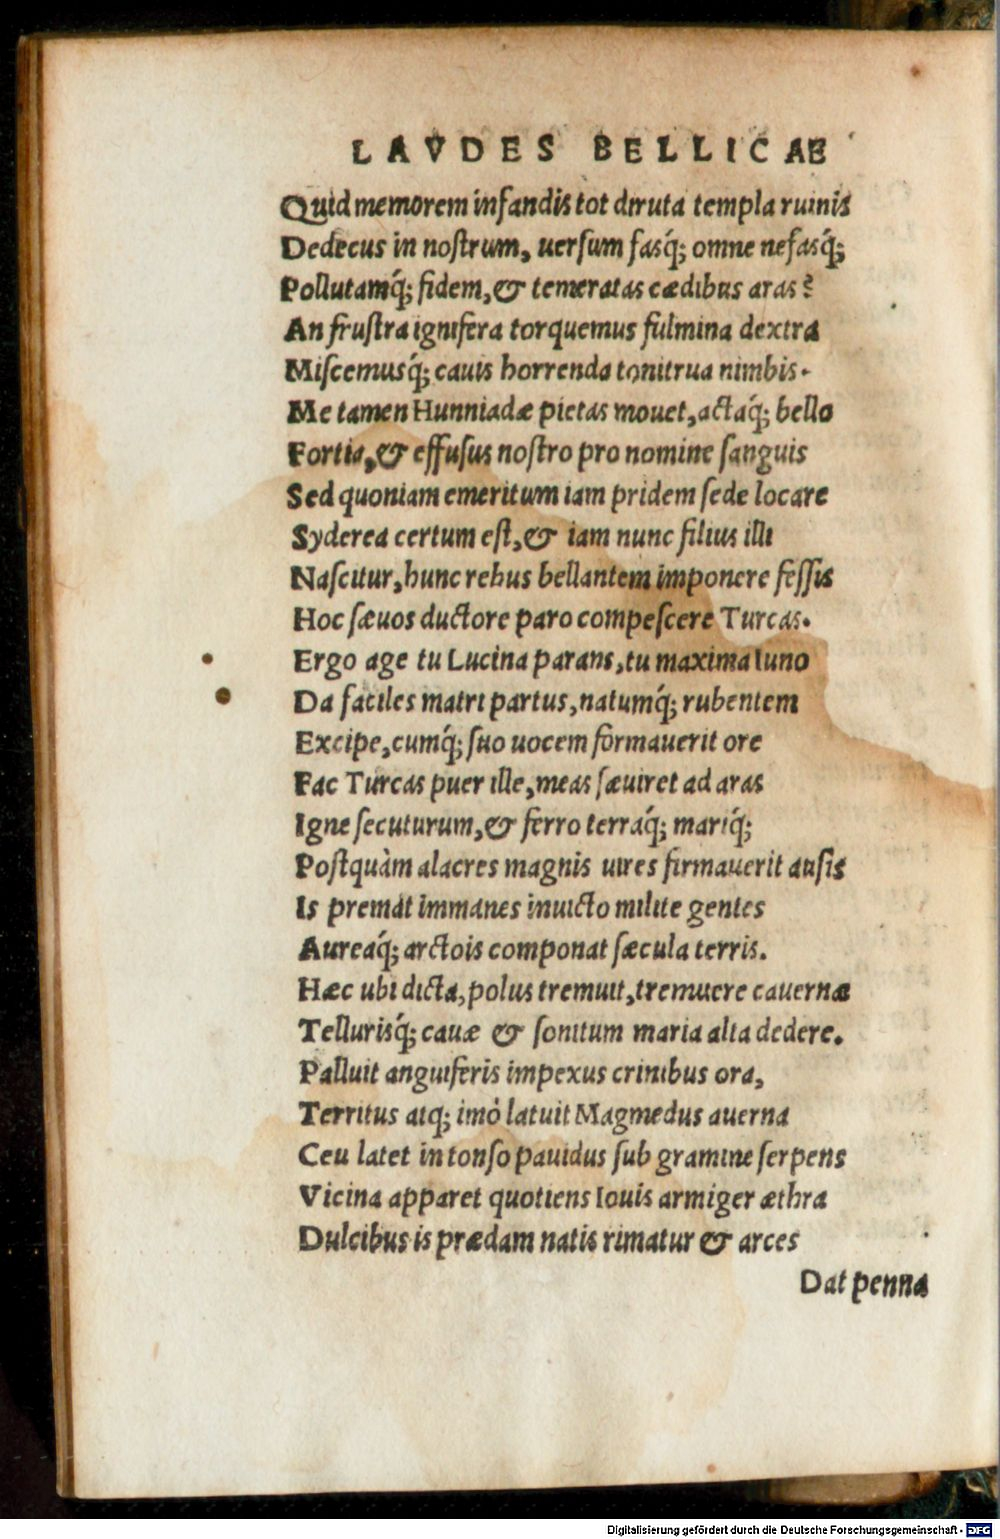 LAVDES BELLICAE
Quid memorem infandis tot diruta templa ruinis
Dedecus in nostrum, uersum fasq́; omne nefasq́;
Pollutamq́; fidem, & temeratas cædibus aras?
An frustra ignifera torquemus fulmina dextra
Miscemusq́; cauis horrenda tonitrua nimbis.
Me tamen Hunniadæ pietas mouet, actaq́; bello
Fortia, & effusus nostro pro nomine sanguis
Sed quoniam emeritum iam pridem sede locare
Syderea certum est, & iam nunc filius illi
Nascitur, hunc rebus bellantem imponere fessis
Hoc sæuos ductore paro compescere Turcas.
Ergo age tu Lucina parans, tu maxima Iuno
Da faciles matri partus, natumq́; rubentem
Excipe, cumq́; suo uocem formauerit ore
Fac Turcas puer ille, meas sæuiret ad aras
Igne secuturum, & ferro terraq́; mariq́;
Postquàm alacres magnis uires firmauerit ausis
Is premat immanes inuicto milite gentes
Aureaq́; arctois componat sæcula terris.
Hæc ubi dicta, polus tremuit, tremuere cauernæ
Tellurisq́; cauæ & sonitum maria alta dedere.
Palluit anguiferis impexus crinibus ora,
Territus atq; imò latuit Magmedus auerna
Ceu latet intonso pauidus sub gramine serpens
Vicina apparet quotiens Iouis armiger æthra
Dulcibus is prædam natis rimatur & arces
Dat penna
Digitalisierung gefördert durch die Deutsche Forschungsgemeinschaft - DFG